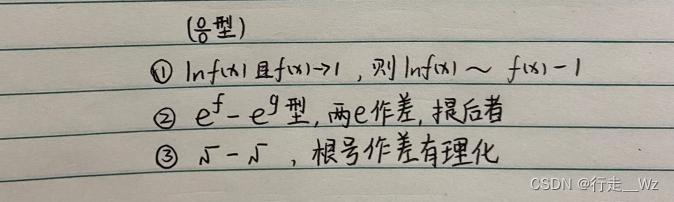 (0/0型)
① lnf(x)且f(x)→1，则lnf(x)～f(x)-1
② e^f-e^g型，两e作差，提后者
③ √-√，根号作差有理化
CSDN @行走__Wz